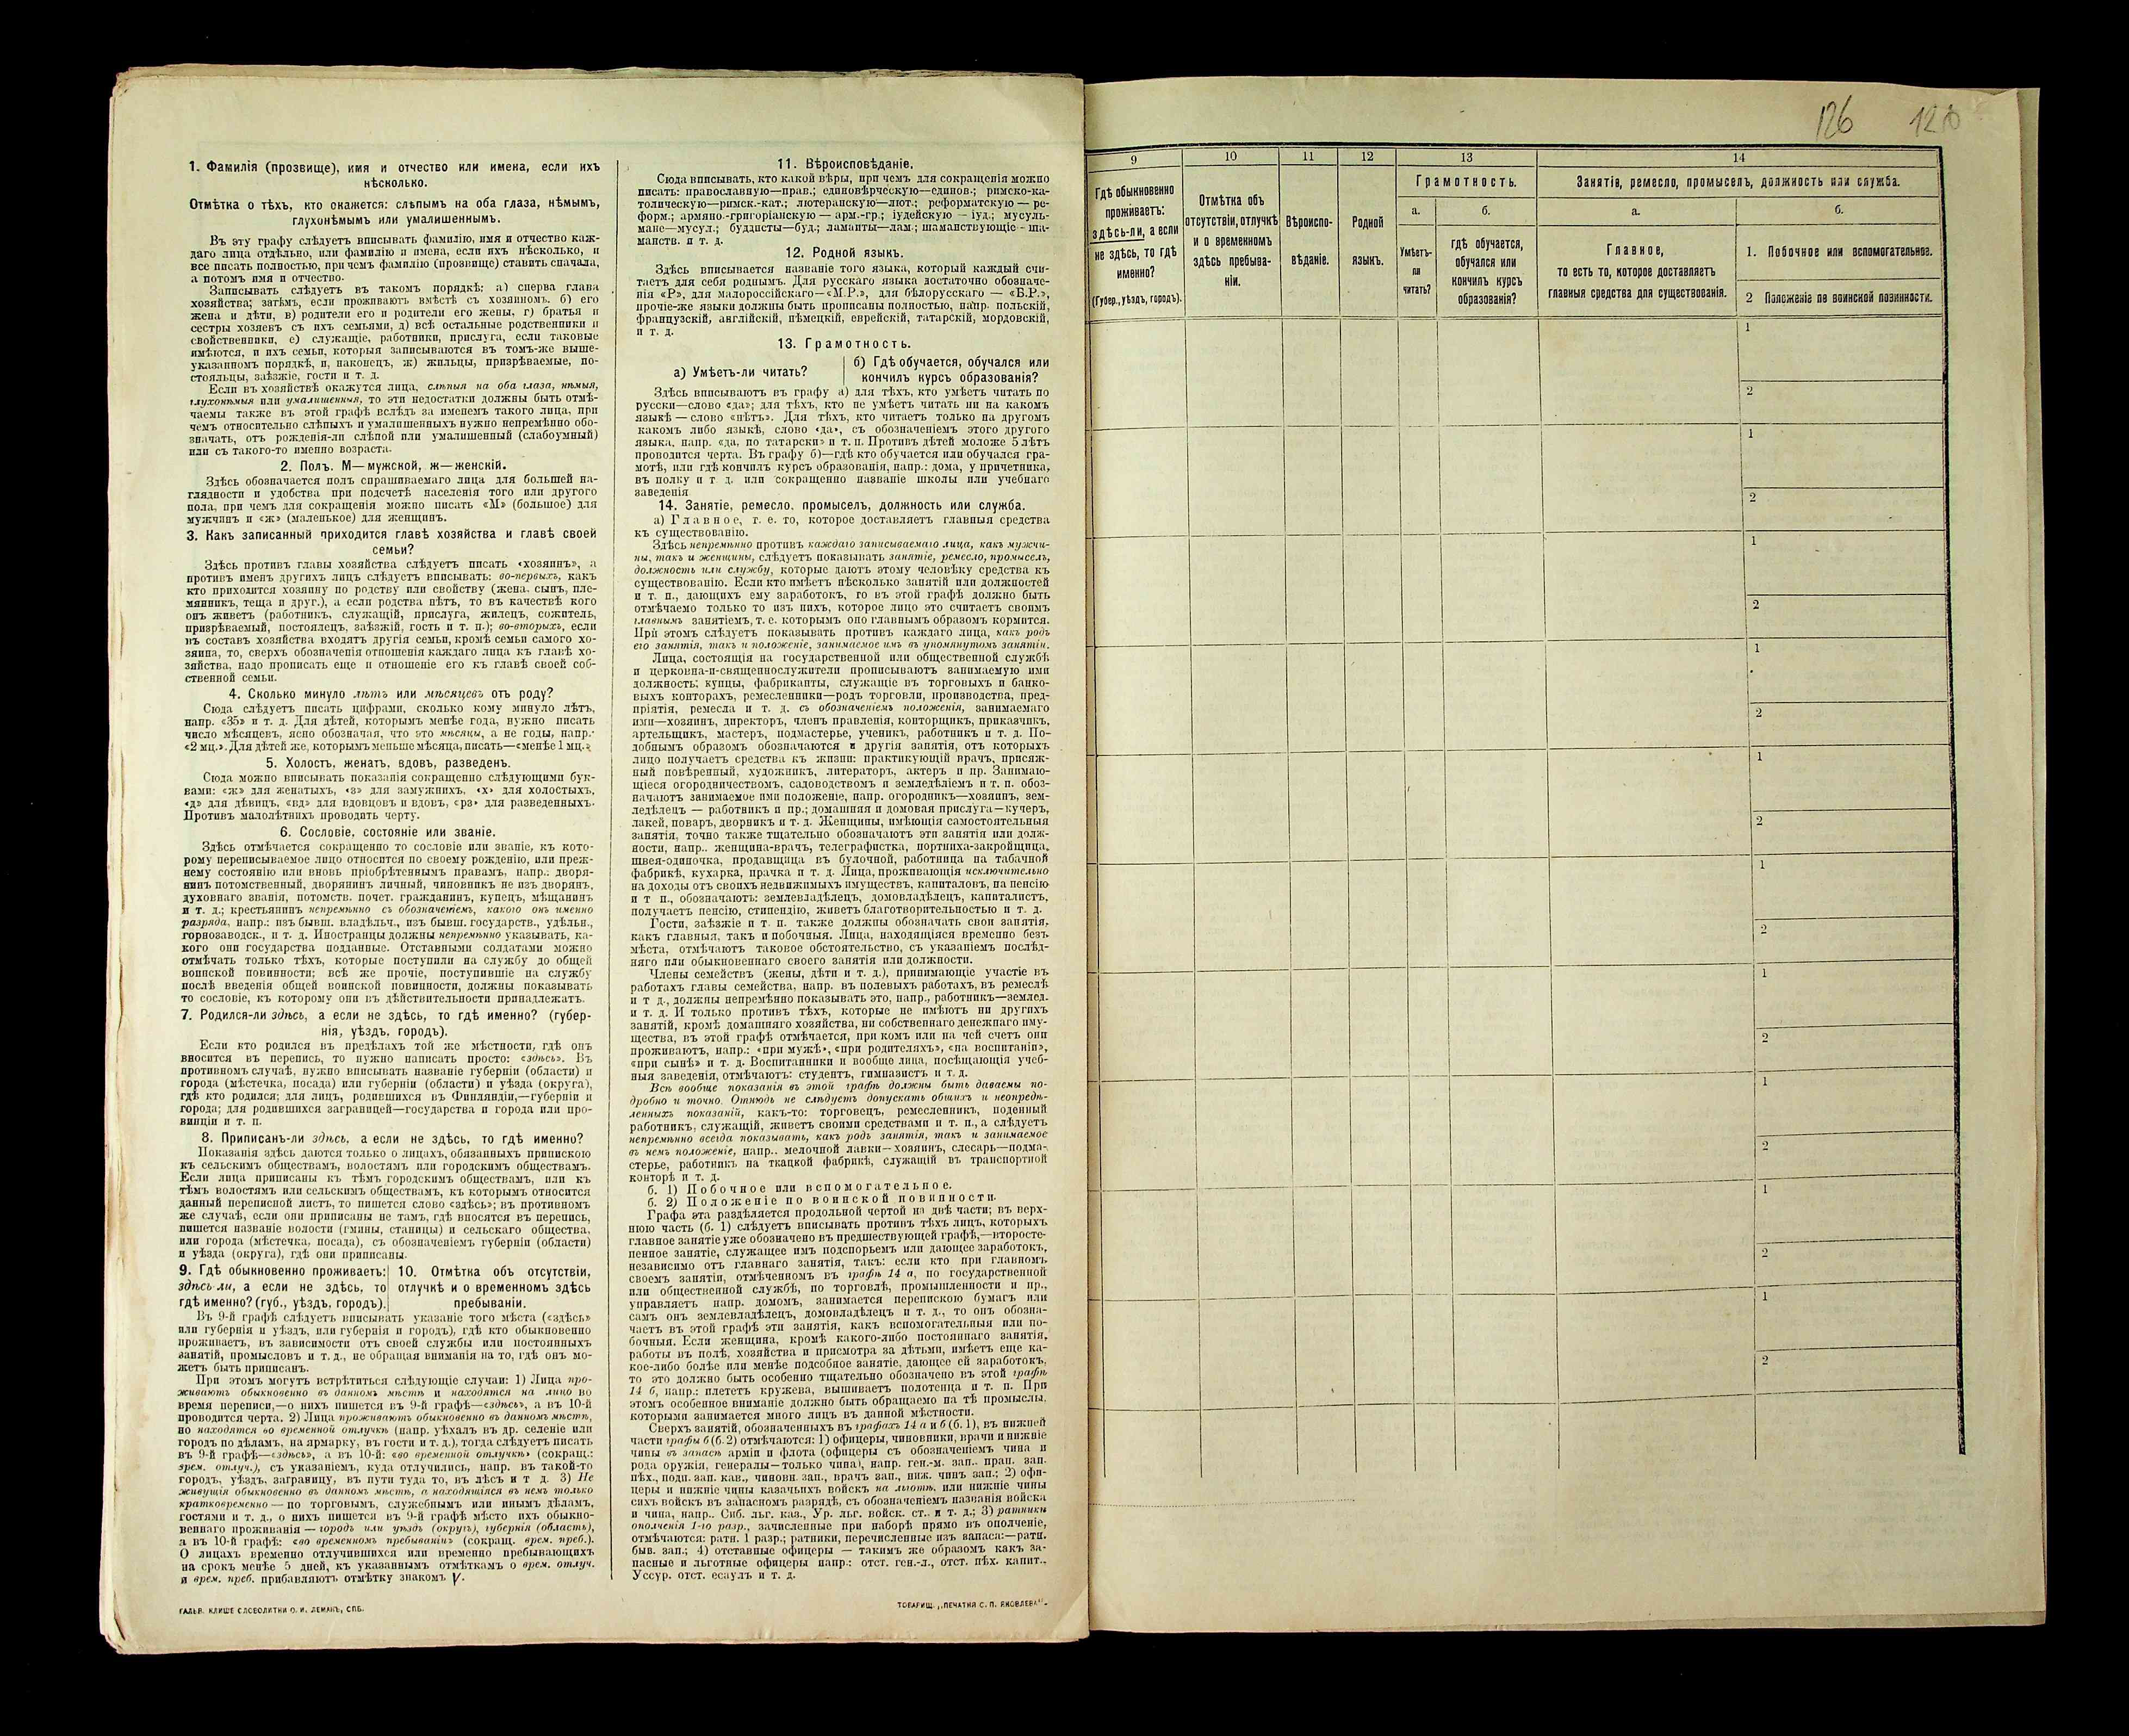 1. Фамилія (прозвище), имя и отчество или имена, если ихъ
нѣсколько.
Отмѣтка о тѣхъ, кто окажется: слѣпымъ на оба глаза, нѣмымъ,
глухонѣмымъ или умалишеннымъ.
Въ эту графу слѣдуетъ вписывать фамилію, имя и отчество каж-
даго лица отдѣльно, или фамилію и имена, если ихъ нѣсколько, и
все писать полностью, при чемъ фамилію (прозвище) ставить сначала,
а потомъ имя и отчество.
Записывать слѣдуетъ въ такомъ порядкѣ: а) сперва глава
хозяйства; затѣмъ, если проживаютъ вмѣстѣ съ хозяиномъ. б) его
жена и дѣти, в) родители его и родители его жены, г) братья и
сестры хозяевъ съ ихъ семьями, д) всѣ остальные родственники и
свойственники, е) служащіе, работники, прислуга, если таковые
имѣются, и ихъ семьи, которыя записываются въ томъ-же выше-
указанномъ порядкѣ, и, наконецъ, ж) жильцы, призрѣваемые, по-
стояльцы, заѣзжіе, гости и т. д.
Если въ хозяйствѣ окажутся лица, слѣпыя на оба глаза, нѣмыя,
глухонѣмыя или умалишенныя, то эти недостатки должны быть отмѣ-
чаемы также въ этой графѣ вслѣдъ за именемъ такого лица, при
чемъ относительно слѣпыхъ и умалишенныхъ нужно непремѣнно обо-
значать, отъ рожденія-ли слѣпой или умалишенный (слабоумный)
или съ такого-то именно возраста.
2. Полъ. М—мужской, ж—женскій.
Здѣсь обозначается полъ спрашиваемаго лица для большей на-
глядности и удобства при подсчетѣ населенія того или другого
пола, при чемъ для сокращенія можно писать «М» (большое) для
мужчинъ и «ж» (маленькое) для женщинъ.
3. Какъ записанный приходится главѣ хозяйства и главѣ своей
семьи?
Здѣсь противъ главы хозяйства слѣдуетъ писать «хозяинъ», а
противъ именъ другихъ лицъ слѣдуетъ вписывать: во-первыхъ, какъ
кто приходится хозяину по родству или свойству (жена, сынъ, пле-
мянникъ, теща и друг.), а если родства нѣтъ, то въ качествѣ кого
онъ живетъ (работникъ, служащій, прислуга, жилецъ, сожитель,
призрѣваемый, постоялецъ, заѣзжій, гость и т. п.); во-вторыхъ, если
въ составъ хозяйства входятъ другія семьи, кромѣ семьи самого хо-
зяина, то, сверхъ обозначенія отношенія каждаго лица къ главѣ хо-
зяйства, надо прописать еще и отношеніе его къ главѣ своей соб-
ственной семьи.
4. Сколько минуло лѣтъ или мѣсяцевъ отъ роду?
Сюда слѣдуетъ писать цифрами, сколько кому минуло лѣтъ,
напр. «35» и т. д. Для дѣтей, которымъ менѣе года, нужно писать
число мѣсяцевъ, ясно обозначая, что это мѣсяцы, а не годы, напр.·
«2 мц.». Для дѣтей же, которымъ меньше мѣсяца, писать—«менѣе 1 мц.»
5. Холостъ, женатъ, вдовъ, разведенъ.
Сюда можно вписывать показанія сокращенно слѣдующими бук-
вами: «ж» для женатыхъ, «з» для замужнихъ, «х» для холостыхъ,
«д» для дѣвицъ, «вд» для вдовцовъ и вдовъ, «рз» для разведенныхъ.
Противъ малолѣтнихъ проводить черту.
6. Сословіе, состояніе или званіе.
Здѣсь отмѣчается сокращенно то сословіе или званіе, къ кото-
рому переписываемое лицо относится по своему рожденію, или преж-
нему состоянію или вновь пріобрѣтеннымъ правамъ, напр.: дворя-
нинъ потомственный, дворянинъ личный, чиновникъ не изъ дворянъ,
духовнаго званія, потомств. почет. гражданинъ, купецъ, мѣщанинъ
и т. д.; крестьянинъ непремѣнно съ обозначеніемъ, какого онъ именно
разряда, напр.: изъ бывш. владѣльч., изъ бывш. государств., удѣльн.,
горнозаводск., и т. д. Иностранцы должны непремѣнно указывать, ка-
кого они государства подданные. Отставными солдатами можно
отмѣчать только тѣхъ, которые поступили на службу до общей
воинской повинности; всѣ же прочіе, поступившіе на службу
послѣ введенія общей воинской повинности, должны показывать
то сословіе, къ которому они въ дѣйствительности принадлежатъ.
7. Родился-ли здѣсь, а если не здѣсь, то гдѣ именно? (губер-
нія, уѣздъ, городъ).
Если кто родился въ предѣлахъ той же мѣстности, гдѣ онъ
вносится въ перепись, то нужно написать просто: «здѣсь». Въ
противномъ случаѣ, нужно вписывать названіе губерніи (области) и
города (мѣстечка, посада) или губерніи (области) и уѣзда (округа),
гдѣ кто родился; для лицъ, родившихся въ Финляндіи,—губерніи и
города; для родившихся заграницей—государства и города или про-
винціи и т. п.
8. Приписанъ-ли здѣсь, а если не здѣсь, то гдѣ именно?
Показанія здѣсь даются только о лицахъ, обязанныхъ припискою
къ сельскимъ обществамъ, волостямъ или городскимъ обществамъ.
Если лица приписаны къ тѣмъ городскимъ обществамъ, или къ
тѣмъ волостямъ или сельскимъ обществамъ, къ которымъ относится
данный переписной листъ, то пишется слово «здѣсь»; въ противномъ
же случаѣ, если они приписаны не тамъ, гдѣ вносятся въ перепись,
пишется названіе волости (гмины, станицы) и сельскаго общества,
или города (мѣстечка, посада), съ обозначеніемъ губерніи (области)
и уѣзда (округа), гдѣ они приписаны.
9. Гдѣ обыкновенно проживаетъ:
здѣсь-ли, а если не здѣсь, то
гдѣ именно? (губ., уѣздъ, городъ).
10. Отмѣтка объ отсутствіи,
отлучкѣ и о временномъ здѣсь
пребываніи.
Въ 9-й графѣ слѣдуетъ вписывать указаніе того мѣста («здѣсь»
или губернія и уѣздъ, или губернія и городъ), гдѣ кто обыкновенно
проживаетъ, въ зависимости отъ своей службы или постоянныхъ
занятій, промысловъ и т. д., не обращая вниманія на то, гдѣ онъ мо-
жетъ быть приписанъ.
При этомъ могутъ встрѣтиться слѣдующіе случаи: 1) Лица про-
живаютъ обыкновенно въ данномъ мѣстѣ и находятся на лицо во
время переписи,—о нихъ пишется въ 9-й графѣ—«здѣсь», а въ 10-й
проводится черта. 2) Лица проживаютъ обыкновенно въ данномъ мѣстѣ,
но находятся во временной отлучкѣ (напр. уѣхалъ въ др. селеніе или
городъ по дѣламъ, на ярмарку, въ гости и т. д.), тогда слѣдуетъ писать
въ 9-й графѣ—«здѣсь», а въ 10-й: «во временной отлучкѣ» (сокращ.:
врем. отлуч.), съ указаніемъ, куда отлучились, напр. въ такой-то
городъ, уѣздъ, заграницу, въ пути туда то, въ лѣсъ и т д. 3) Не
живущія обыкновенно въ данномъ мѣстѣ, а находящіяся въ немъ только
кратковременно — по торговымъ, служебнымъ или инымъ дѣламъ,
гостями и т. д., о нихъ пишется въ 9-й графѣ мѣсто ихъ обыкно-
веннаго проживанія — городъ или уѣздъ (округъ), губернія (область),
а въ 10-й графѣ: «во временномъ пребываніи» (сокращ. врем. преб.).
О лицахъ временно отлучившихся или временно пребывающихъ
на срокъ менѣе 5 дней, къ указаннымъ отмѣткамъ о врем. отлуч.
и врем. преб. прибавляютъ отмѣтку знакомъ V.
ГАЛЬВ. КЛИШЕ СЛОВОЛИТНИ О. И. ЛЕМАНЪ, СПБ.
11. Вѣроисповѣданіе.
Сюда вписывать, кто какой вѣры, при чемъ для сокращенія можно
писать: православную—прав.; единовѣрческую—единов.; римско-ка-
толическую—римск.-кат.; лютеранскую—лют.; реформатскую — ре-
форм.; армяно.-григоріанскую — арм.-гр.; іудейскую — іуд.; мусуль-
мане—мусул.; буддисты—буд.; ламаиты—лам.; шаманствующіе - ша-
манств. и т. д.
12. Родной языкъ.
Здѣсь вписывается названіе того языка, который каждый счи-
таетъ для себя роднымъ. Для русскаго языка достаточно обозначе-
нія «Р», для малороссійскаго—«М.Р.», для бѣлорусскаго — «Б.Р.»,
прочіе-же языки должны быть прописаны полностью, напр. польскій,
французскій, англійскій, нѣмецкій, еврейскій, татарскій, мордовскій,
и т. д.
13. Грамотность.
а) Умѣетъ-ли читать?
б) Гдѣ обучается, обучался или
кончилъ курсъ образованія?
Здѣсь вписываютъ въ графу а) для тѣхъ, кто умѣетъ читать по
русски—слово «да»; для тѣхъ, кто не умѣетъ читать ни на какомъ
языкѣ — слово «нѣтъ». Для тѣхъ, кто читаетъ только на другомъ
какомъ либо языкѣ, слово «да», съ обозначеніемъ этого другого
языка, напр. «да, по татарски» и т. п. Противъ дѣтей моложе 5 лѣтъ
проводится черта. Въ графу б)—гдѣ кто обучается или обучался гра-
мотѣ, или гдѣ кончилъ курсъ образованія, напр.: дома, у причетника,
въ полку и т д. или сокращенно названіе школы или учебнаго
заведенія
14. Занятіе, ремесло, промыселъ, должность или служба.
а) Главное, т. е. то, которое доставляетъ главныя средства
къ существованію.
Здѣсь непремѣнно противъ каждаго записываемаго лица, какъ мужчи-
ны, такъ и женщины, слѣдуетъ показывать занятіе, ремесло, промыселъ,
должность или службу, которые даютъ этому человѣку средства къ
существованію. Если кто имѣетъ нѣсколько занятій или должностей
и т. п., дающихъ ему заработокъ, то въ этой графѣ должно быть
отмѣчаемо только то изъ нихъ, которое лицо это считаетъ своимъ
главнымъ занятіемъ, т. е. которымъ оно главнымъ образомъ кормится.
При этомъ слѣдуетъ показывать противъ каждаго лица, какъ родъ
его занятія, такъ и положеніе, занимаемое имъ въ упомянутомъ занятіи.
Лица, состоящія на государственной или общественной службѣ
и церковна-и-священнослужители прописываютъ занимаемую ими
должность; купцы, фабриканты, служащіе въ торговыхъ и банко-
выхъ конторахъ, ремесленники—родъ торговли, производства, пред-
пріятія, ремесла и т. д. съ обозначеніемъ положенія, занимаемаго
ими—хозяинъ, директоръ, членъ правленія, конторщикъ, приказчикъ,
артельщикъ, мастеръ, подмастерье, ученикъ, работникъ и т. д. По-
добнымъ образомъ обозначаются и другія занятія, отъ которыхъ
лицо получаетъ средства къ жизни: практикующій врачъ, присяж-
ный повѣренный, художникъ, литераторъ, актеръ и пр. Занимаю-
щіеся огородничествомъ, садоводствомъ и земледѣліемъ и т. п. обоз-
начаютъ занимаемое ими положеніе, напр. огородникъ—хозяинъ, зем-
ледѣлецъ — работникъ и пр.; домашняя и домовая прислуга—кучеръ,
лакей, поваръ, дворникъ и т. д. Женщины, имѣющія самостоятельныя
занятія, точно также тщательно обозначаютъ эти занятія или долж-
ности, напр.. женщина-врачъ, телеграфистка, портниха-закройщица,
швея-одиночка, продавщица въ булочной, работница на табачной
фабрикѣ, кухарка, прачка и т. д. Лица, проживающія исключительно
на доходы отъ своихъ недвижимыхъ имуществъ, капиталовъ, на пенсію
и т п., обозначаютъ: землевладѣлецъ, домовладѣлецъ, капиталистъ,
получаетъ пенсію, стипендію, живетъ благотворительностью и т. д.
Гости, заѣзжіе и т. п. также должны обозначать свои занятія,
какъ главныя, такъ и побочныя. Лица, находящіяся временно безъ
мѣста, отмѣчаютъ таковое обстоятельство, съ указаніемъ послѣд-
няго или обыкновеннаго своего занятія или должности.
Члены семействъ (жены, дѣти и т. д.), принимающіе участіе въ
работахъ главы семейства, напр. въ полевыхъ работахъ, въ ремеслѣ
и т д., должны непремѣнно показывать это, напр., работникъ—землед.
и т. д. И только противъ тѣхъ, которые не имѣютъ ни другихъ
занятій, кромѣ домашняго хозяйства, ни собственнаго денежнаго иму-
щества, въ этой графѣ отмѣчается, при комъ или на чей счетъ они
проживаютъ, напр.: «при мужѣ», «при родителяхъ», «на воспитаніи»,
«при сынѣ» и т. д. Воспитанники и вообще лица, посѣщающія учеб-
ныя заведенія, отмѣчаютъ: студентъ, гимназистъ и т. д.
Всѣ вообще показанія въ этой графѣ должны быть даваемы по-
дробно и точно. Отнюдь не слѣдуетъ допускать общихъ и неопредѣ-
ленныхъ показаній, какъ-то: торговецъ, ремесленникъ, поденный
работникъ, служащій, живетъ своими средствами и т. п., а слѣдуетъ
непремѣнно всегда показывать, какъ родъ занятія, такъ и занимаемое
въ немъ положеніе, напр.. мелочной лавки—хозяинъ, слесарь—подма-
стерье, работникъ на ткацкой фабрикѣ, служащій въ транспортной
конторѣ и т. д.
б. 1) Побочное или вспомогательное.
б. 2) Положеніе по воинской повинности.
Графа эта раздѣляется продольной чертой на двѣ части; въ верх-
нюю часть (б. 1) слѣдуетъ вписывать противъ тѣхъ лицъ, которыхъ
главное занятіе уже обозначено въ предшествующей графѣ,—второсте-
пенное занятіе, служащее имъ подспорьемъ или дающее заработокъ,
независимо отъ главнаго занятія, такъ: если кто при главномъ
своемъ занятіи, отмѣченномъ въ графѣ 14 а, по государственной
или общественной службѣ, по торговлѣ, промышленности и пр.,
управляетъ напр. домомъ, занимается перепискою бумагъ или
самъ онъ землевладѣлецъ, домовладѣлецъ и т. д., то онъ обозна-
чаетъ въ этой графѣ эти занятія, какъ вспомогательныя или по-
бочныя. Если женщина, кромѣ какого-либо постояннаго занятія,
работы въ полѣ, хозяйства и присмотра за дѣтьми, имѣетъ еще ка-
кое-либо болѣе или менѣе подсобное занятіе, дающее ей заработокъ,
то это должно быть особенно тщательно обозначено въ этой графѣ
14 б, напр.: плететъ кружева, вышиваетъ полотенца и т. п. При
этомъ особенное вниманіе должно быть обращаемо на тѣ промыслы,
которыми занимается много лицъ въ данной мѣстности.
Сверхъ занятій, обозначенныхъ въ графахъ 14 а и б (б. 1), въ нижней
части графы б (б. 2) отмѣчаются: 1) офицеры, чиновники, врачи и нижніе
чины въ запасѣ арміи и флота (офицеры съ обозначеніемъ чина и
рода оружія, генералы—только чина), напр. ген.-м. зап.. прап. зап.
пѣх., подп. зап. кав., чиновн. зап., врачъ зап., ниж. чинъ зап.; 2) офи-
церы и нижніе чины казачьихъ войскъ на льготѣ, или нижніе чины
сихъ войскъ въ запасномъ разрядѣ, съ обозначеніемъ названія войска
и чина, напр.. Сиб. льг. каз., Ур. льг. войск. ст.. и т. д.; 3) ратники
ополченія 1-го разр., зачисленные при наборѣ прямо въ ополченіе,
отмѣчаются: ратн. 1 разр.; ратники, перечисленные изъ запаса:—ратн.
быв. зап.; 4) отставные офицеры — такимъ же образомъ какъ за-
пасные и льготные офицеры напр.: отст. ген.-л., отст. пѣх. капит..
Уссур. отст. есаулъ и т. д.
ТОВАРИЩ. „ПЕЧАТНЯ С. П. ЯКОВЛЕВА“.
126
9
10
11
12
13
14
Гдѣ обыкновенно
проживаетъ:
здѣсь-ли, а если
не здѣсь, то гдѣ
именно?
(Губер., уѣздъ, городъ).
Отмѣтка объ
отсутствіи, отлучкѣ
и о временномъ
здѣсь пребыва-
ніи.
Вѣроиспо-
вѣданіе.
Родной
языкъ.
Грамотность.
а.
б.
Умѣетъ-
ли
читать?
гдѣ обучается,
обучался или
кончилъ курсъ
образованія?
Занятіе, ремесло, промыселъ, должность или служба.
а.
б.
Главное,
то есть то, которое доставляетъ
главныя средства для существованія.
1. Побочное или вспомогательное.
2 Положеніе по воинской повинности.
1
2
1
2
1
2
1
2
1
2
1
2
1
2
1
2
1
2
1
2